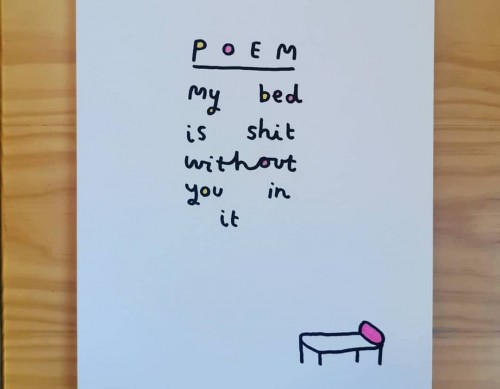 POEM
My bed
is shit
without
you in
it